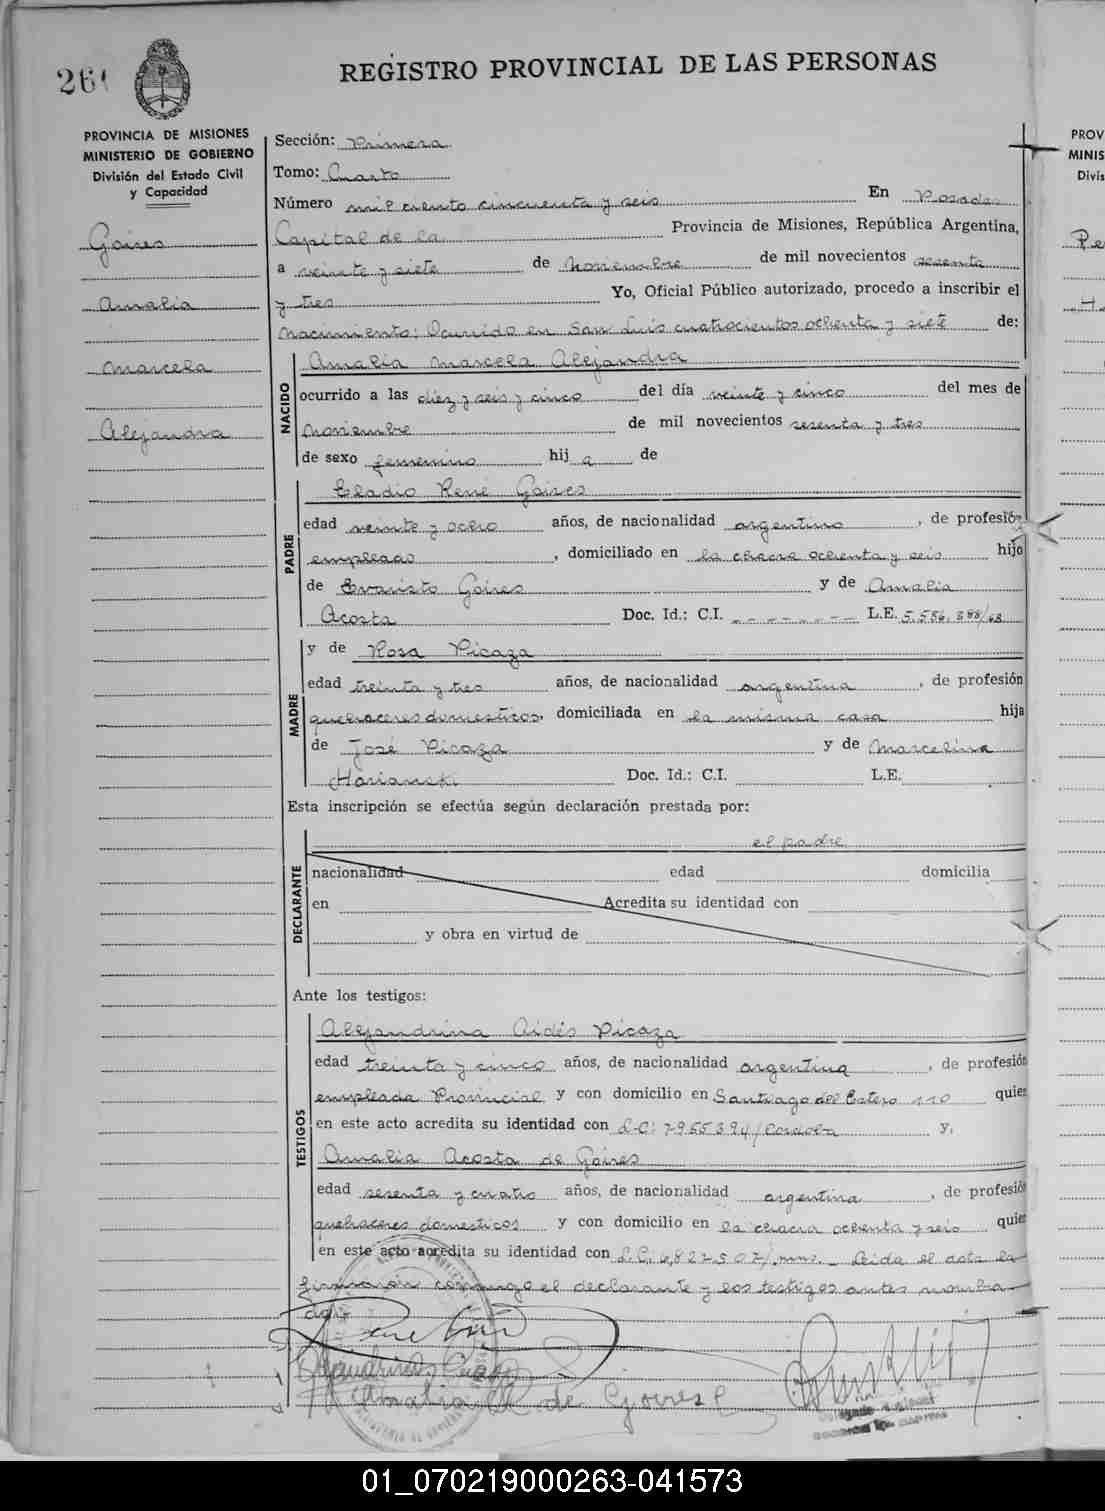 REGISTRO PROVINCIAL DE LAS PERSONAS
PROVINCIA DE MISIONES
MINISTERIO DE GOBIERNO
División del Estado Civil
y Capacidad
Goires
Amalia
Marcela
Alejandra
Sección: Primera
Tomo: Cuarto
Número mil ciento cincuenta y seis En Posadas
Capital de la Provincia de Misiones, República Argentina,
a veinte y siete de Noviembre de mil novecientos sesenta
y tres Yo, Oficial Público autorizado, procedo a inscribir el
nacimiento: Ocurrido en San Luis cuatrocientos ochenta y siete de:
NACIDO
Amalia Marcela Alejandra
ocurrido a las diez y seis y cinco del día veinte y cinco del mes de
Noviembre de mil novecientos sesenta y tres
de sexo femenino hij a de
PADRE
Eladio René Goires
edad veinte y ocho años, de nacionalidad argentino, de profesión
empleado, domiciliado en la chacra ochenta y seis hijo
de Evaristo Goires y de Amalia
Acosta Doc. Id.: C.I. L.E. 5.556.388/63
MADRE
y de Rosa Picaza
edad treinta y tres años, de nacionalidad argentina, de profesión
quehaceres domesticos, domiciliada en la misma casa hija
de José Picaza y de Marcelina
Harianski Doc. Id.: C.I. L.E.
Esta inscripción se efectúa según declaración prestada por:
DECLARANTE
el padre
nacionalidad edad domicilia
en Acredita su identidad con
y obra en virtud de
Ante los testigos:
TESTIGOS
Alejandrina Aidés Picaza
edad treinta y cinco años, de nacionalidad argentina, de profesión
empleada Provincial y con domicilio en Santiago del Estero 110 quien
en este acto acredita su identidad con L.C: 7955394/Cordoba y,
Amalia Acosta de Goires
edad sesenta y cuatro años, de nacionalidad argentina, de profesión
quehaceres domesticos y con domicilio en la chacra ochenta y seis quien
en este acto acredita su identidad con L.C. 6.827.507/mns. Leida el acta la
firmaron conmigo el declarante y los testigos antes nombra
dos
Amalia A de Goires
PROV
MINIS
Divis
01_070219000263-041573